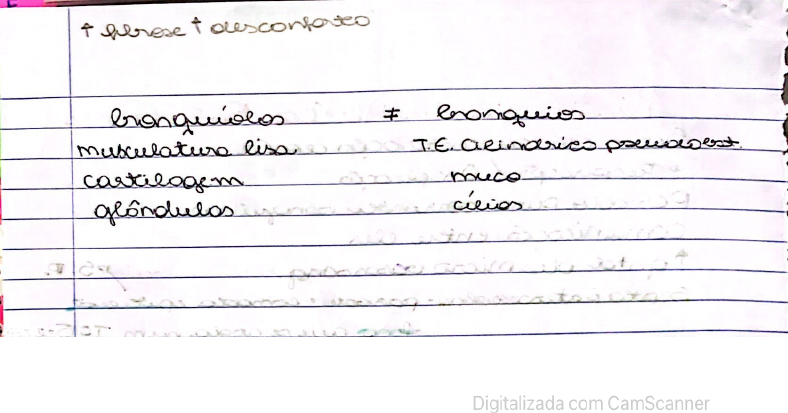 ↑ fibrose ↑ desconforto
bronquíolos ≠ bronquios
musculatura lisa T.E. cilindrico pseudoest.
cartilagem muco
glândulas cílios
Digitalizada com CamScanner